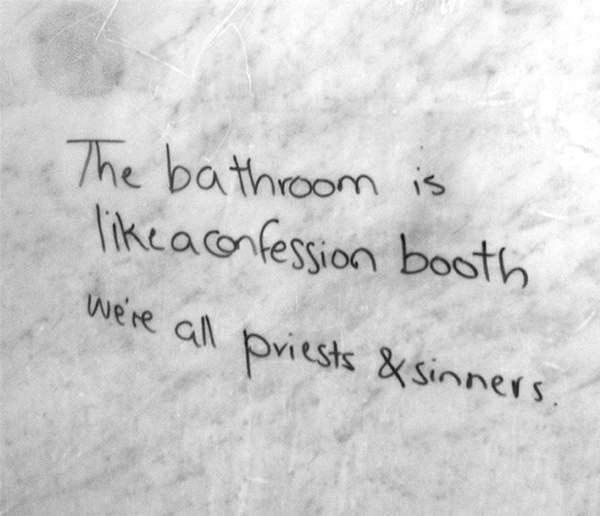 The bathroom is
like a confession booth
we're all priests & sinners.